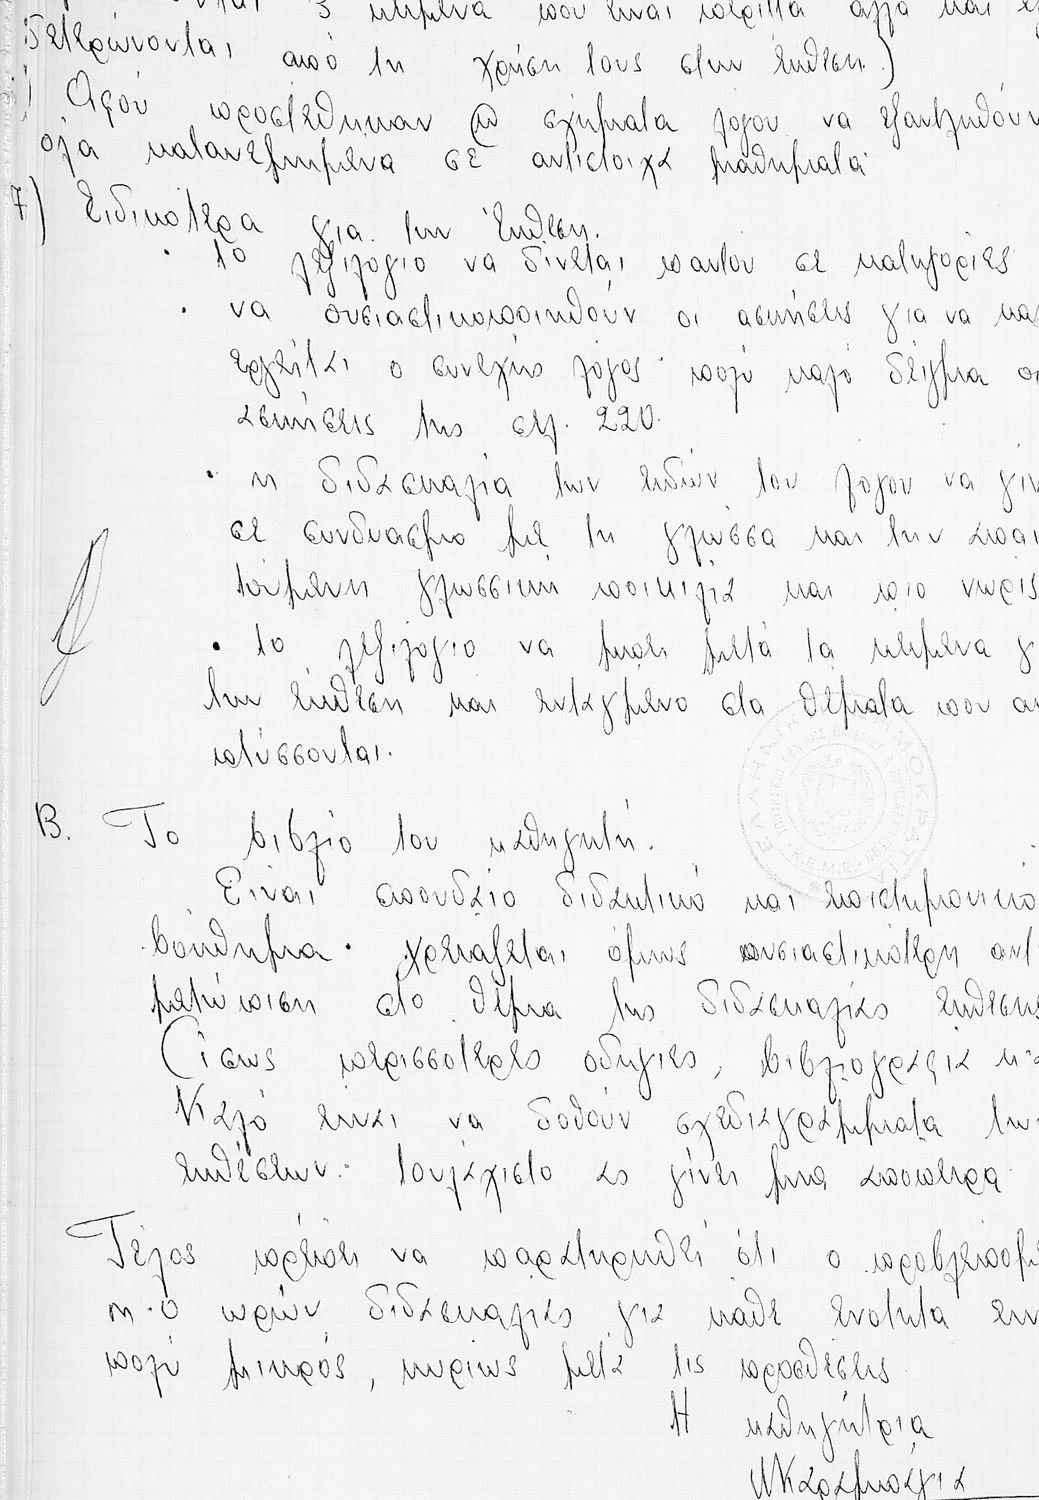 3 κείμενα που είναι περιττά αλλά και
δετερώνονται από τη χρήση τους στην έκθεση.)
Αφού προστέθηκαν σχήματα λόγου να εξαντληθούν
όλα κατανεμημένα σε αντίστοιχα μαθήματα
7) Ειδικότερα για την έκθεση.
· το λεξιλόγιο να δίνεται παντού σε κατηγορίες
· να ουσιαστικοποιηθούν οι ασκήσεις για να κα
εργείται ο συνεχής λόγος· πολύ καλό δείγμα οι
ασκήσεις της σελ. 220.
· η διδασκαλία των ειδών του λόγου να γίν
σε συνδυασμό με τη γλώσσα και την απαι
τούμενη γλωσσική ποικιλία και πιο νωρίς
· το λεξιλόγιο να μπει μετά τα κείμενα γ
την έκθεση και ενταγμένο στα θέματα που αν
πτύσσονται.
Β. Το βιβλίο του καθηγητή.
Είναι σπουδαίο διδακτικό και επιστημονικό
βοήθημα· χρειάζεται όμως ουσιαστικότερη αντ
μετώπιση στο θέμα της διδασκαλίας έκθεσης
(ίσως περισσότερες οδηγίες, βιβλιογραφία κ.α
Καλό είναι να δοθούν σχεδιαγράμματα των
εκθέσεων· τουλάχιστο ας γίνει μια απόπειρα
Τέλος πρέπει να παρατηρηθεί ότι ο προβλεπόμε
ν.ο ωρών διδασκαλίας για κάθε ενότητα είν
πολύ μικρός, κυρίως μετά τις προσθέσεις.
Η καθηγήτρια
ΕΛΛΗΝΙΚΗ ΔΗΜΟΚΡΑΤΙΑ